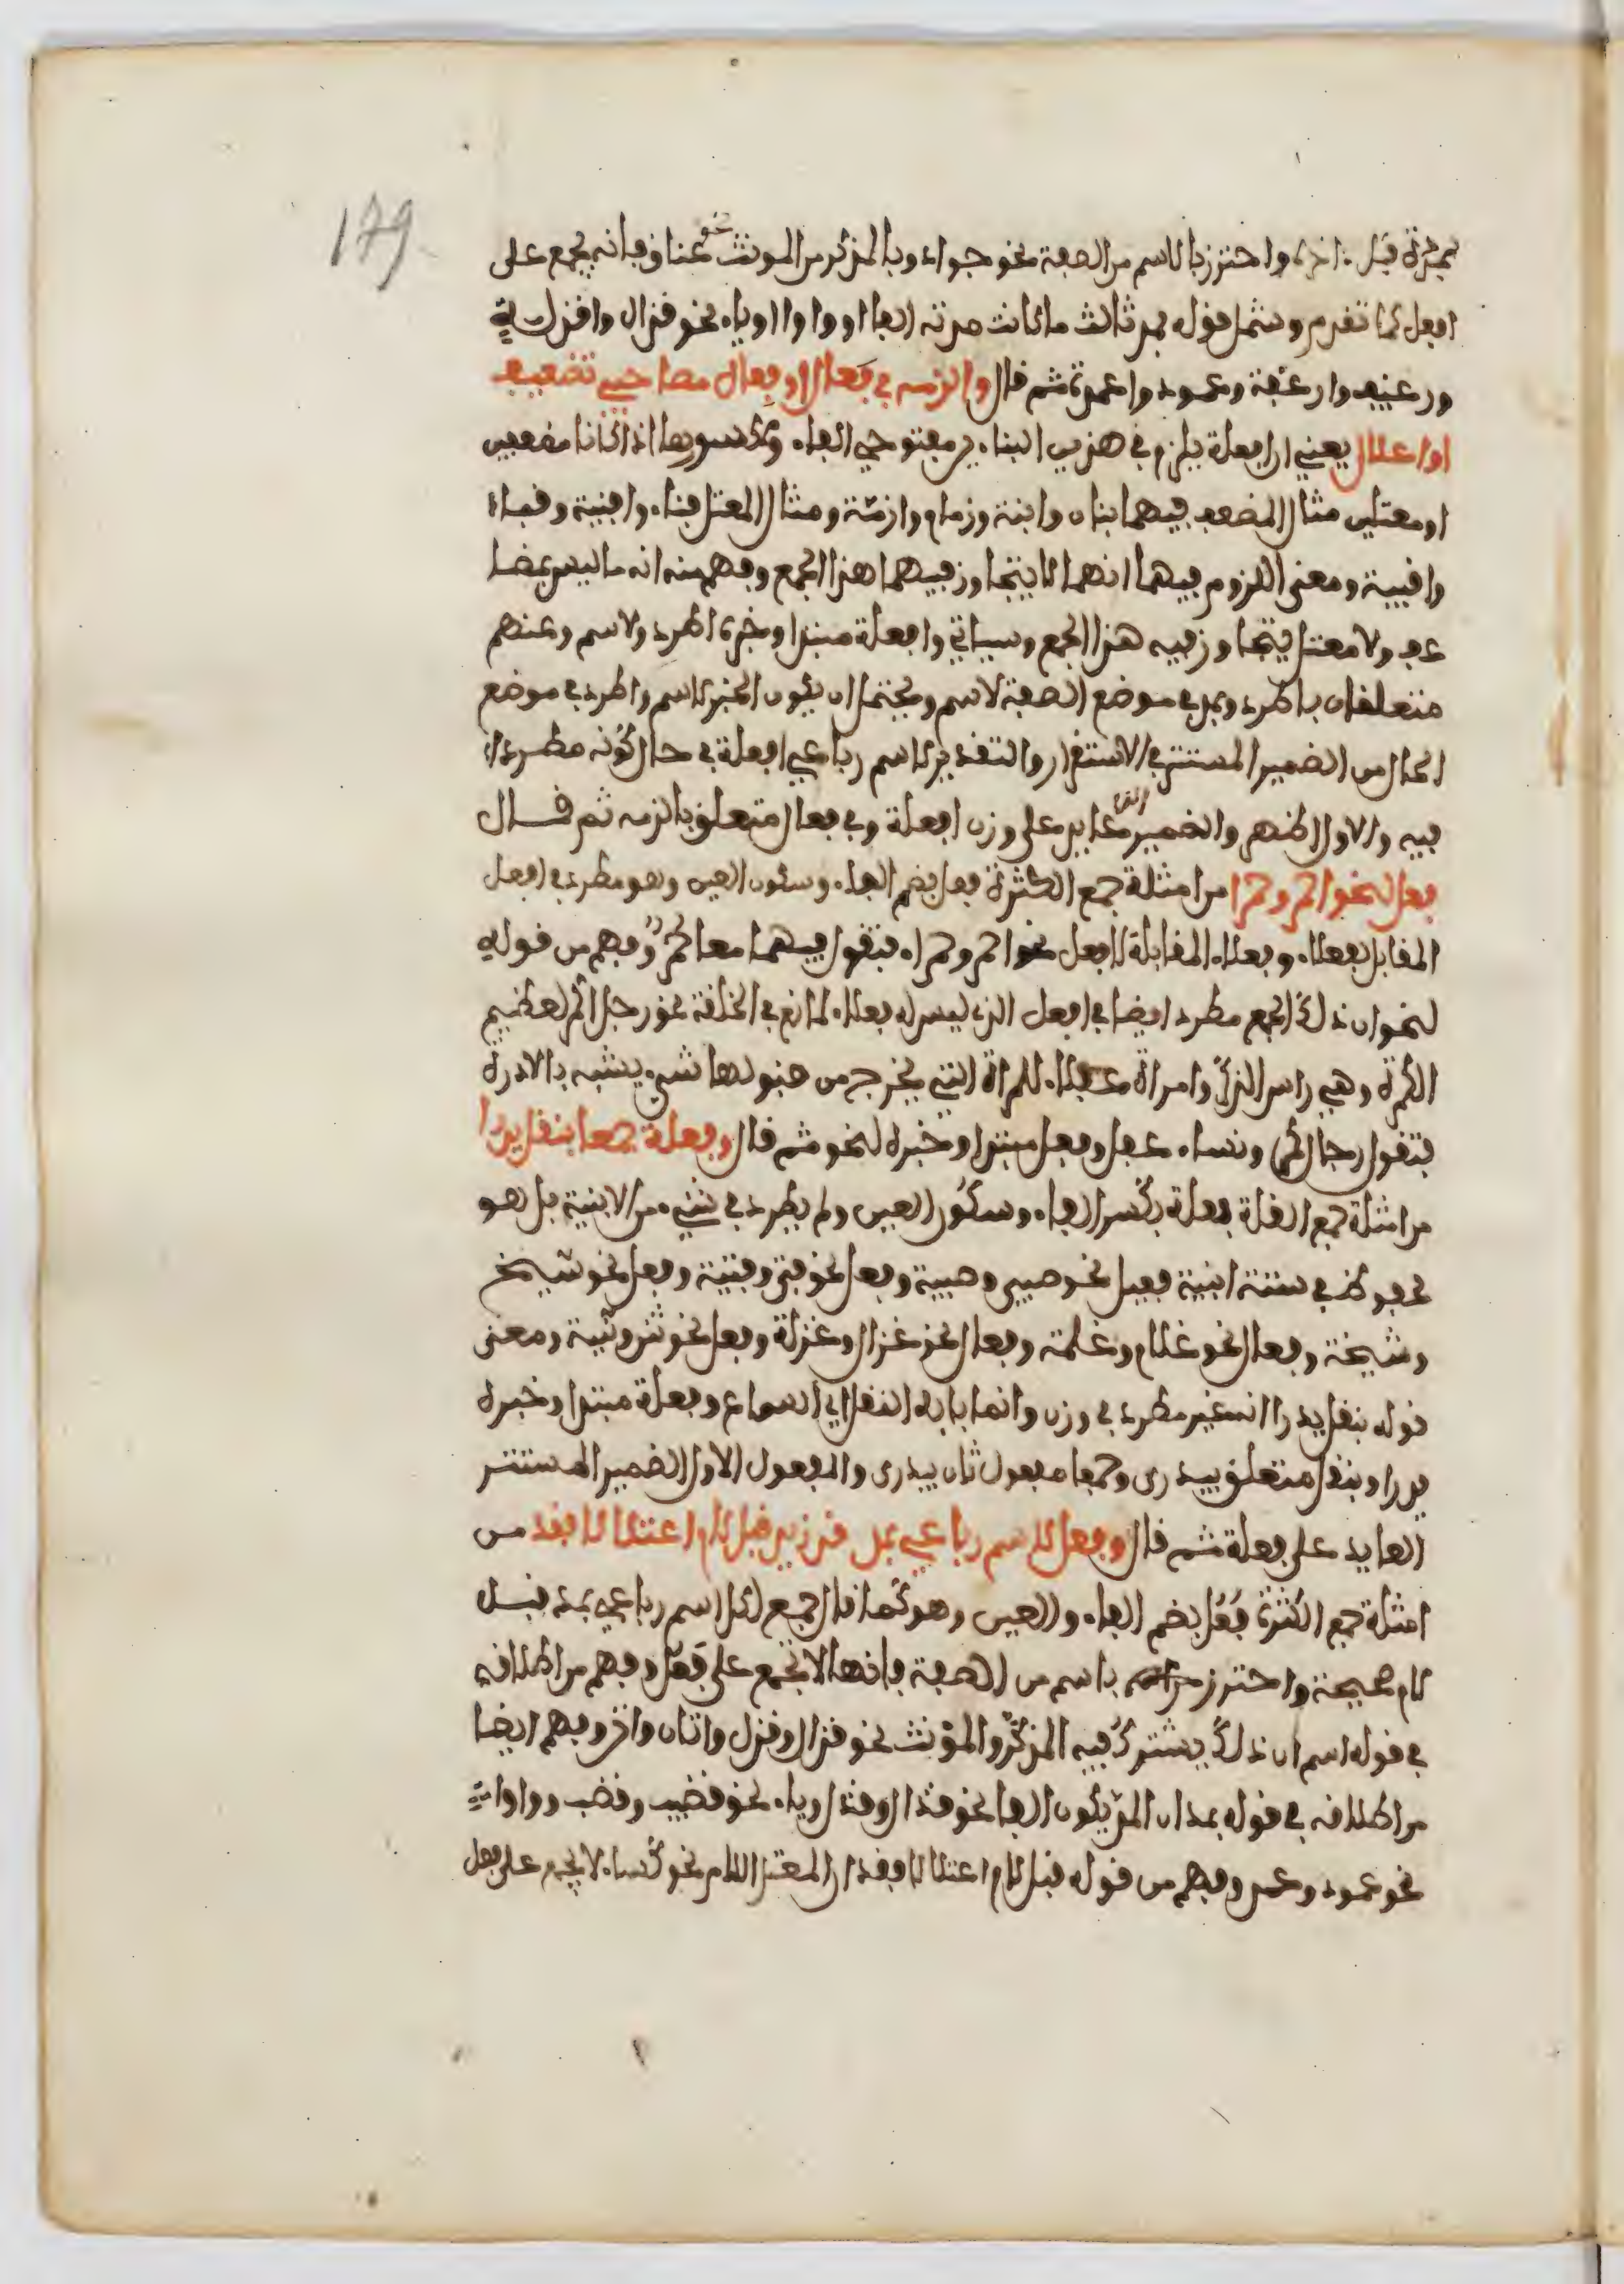 179
بمدة قبل اخره واحترز بالاسم من الصفة نحو جواد وبالمذكر من المونث نحو عناق فانه يجمع على
افعل كما تقدم وشمل قوله بمد ثالث ما كانت مدته الفا او واوا او ياء نحو قذال واقذلة
ورغيف وارغفة وعمود واعمدة ثم قال والزمه في فعال او فعال مصاحبي تضعيف
او اعلال يعني ان افعلة يلزم في هذين البناءين مفتوحي الفاء ومكسورها اذا كانا مضعفين
او معتلين مثال المضعف فيهما بتات وابتة وزمام وازمة ومثال المعتل فناء وافنية وقباء
واقبية ومعنى اللزوم فيهما انهما لا يتجاوز فيهما هذا الجمع وفهم منه انه ما ليس مضا
عف ولا معتل يتجاوز فيه هذا الجمع وسياتي وافعلة مبتدا وخبره اطرد ولاسم وعنهم
متعلقان باطرد وبمد في موضع الصفة لاسم ويحتمل ان يكون الخبر لاسم واطرد في موضع
الحال من الضمير المستتر في الاستقرار والتقدير لاسم رباعي افعلة في حال كونه مطردا
فيه والاول اظهر والضمير في الزمه عايد على وزن افعلة وفي فعال متعلق بالزمه ثم قال
فعل لنحو احمر وحمرا من امثلة جمع الكثرة فعل بضم الفاء وسكون العين وهو مطرد في افعل
المقابل بفعلاء وفعلاء المقابلة لافعل نحو احمر وحمراء فتقول فيهما معا حمر وفهم من قوله
لنحو ان ذلك الجمع مطرد ايضا في افعل الذي ليس له فعلاء لمانع في الخلقة نحو رجل اكمر لعظيم
الكمرة وهي راس الذكر وامراة عفلاء للمراة التي يخرج من قبولها شيء يشبه بالادرة
فتقول رجال كمر ونساء عفل وفعل مبتدا وخبره لنحو ثم قال وفعلة جمعا بنقل يدرا
من امثلة جمع القلة فعلة بكسر الفاء وسكون العين ولم يطرد في شيء من الابنية بل هو
محفوظ في ستة ابنية فعيل نحو صبي وصبية وفعل نحو فتى وفتية وفعل نحو شيخ
وشيخة وفعال نحو غلام وغلمة وفعال نحو غزال وغزلة وفعل نحو ثنى وثنية ومعنى
قوله بنقل يدرا انه غير مطرد في وزن وانما بابه النقل اي السماع وفعلة مبتدا وخبره
يدرا وبنقل متعلق بيدرى وجمعا مفعول ثان بيدرى والمفعول الاول الضمير المستتر
العايد على فعلة ثم قال وفعل لاسم رباعي بمد قد زيد قبل لام اعلالا فقد من
امثلة جمع الكثرة فعل بضم الفاء والعين وهو كما قال جمع لكل اسم رباعي بمد قبل
لام صحيحة واحترز باسم من الصفة فانها لا تجمع على فعل وفهم من اطلاقه
في قوله اسم ان ذلك يشترك فيه المذكر والمؤنث نحو قذال وقذل واتان واتن وفهم ايضا
من اطلاقه في قوله بمد ان المد يكون الفا نحو قذال وقذل وياء نحو قضيب وقضب وواوا
نحو عمود وعمد وفهم من قوله قبل لام اعلالا فقد ان المعتل اللام نحو كساء لا يجمع على فعل